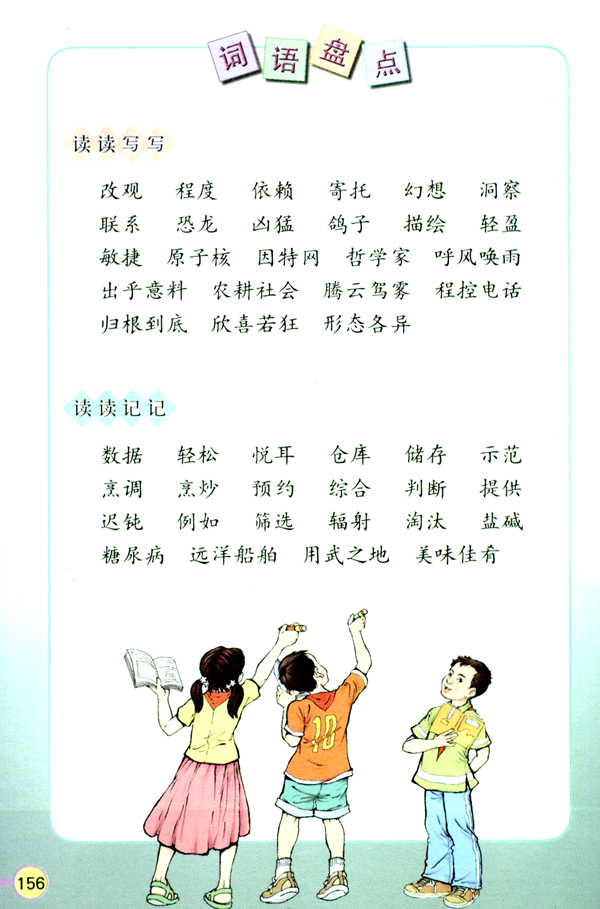 词语盘点
读读写写
改观 程度 依赖 寄托 幻想 洞察
联系 恐龙 凶猛 鸽子 描绘 轻盈
敏捷 原子核 因特网 哲学家 呼风唤雨
出乎意料 农耕社会 腾云驾雾 程控电话
归根到底 欣喜若狂 形态各异
读读记记
数据 轻松 悦耳 仓库 储存 示范
烹调 烹炒 预约 综合 判断 提供
迟钝 例如 筛选 辐射 淘汰 盐碱
糖尿病 远洋船舶 用武之地 美味佳肴
10
156